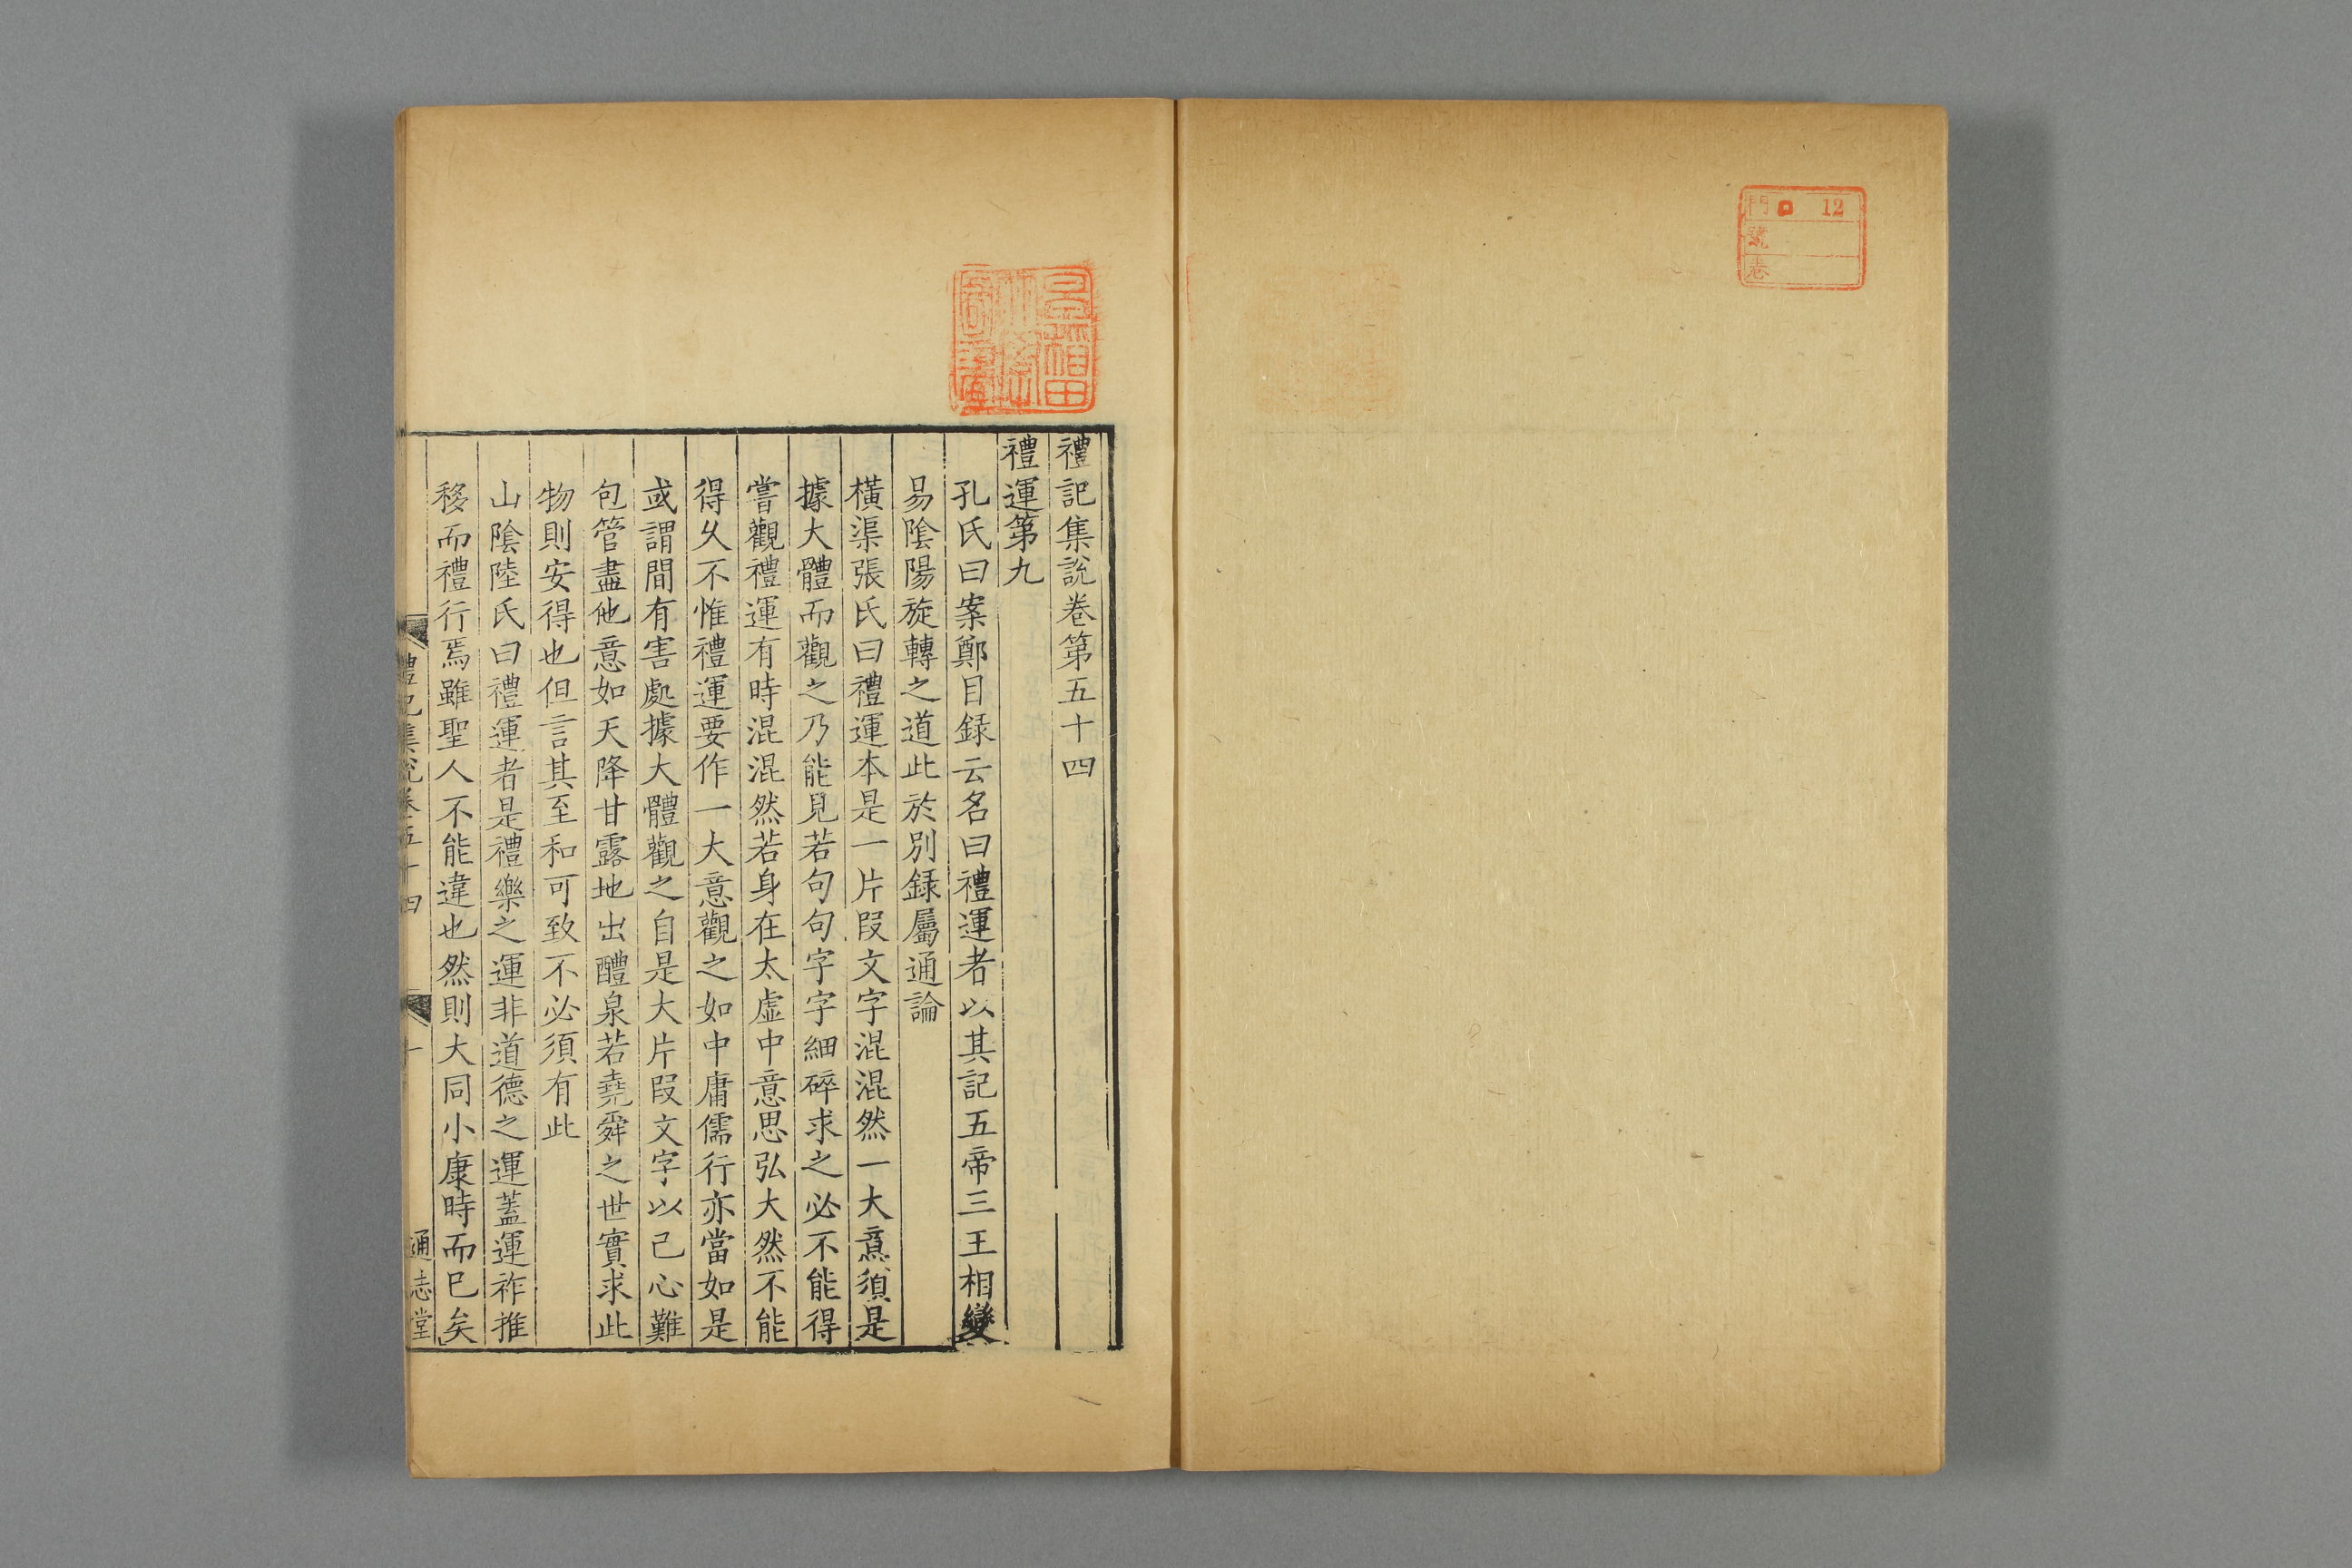 門 12
號
卷
禮記集說卷第五十四
禮運第九
孔氏曰案鄭目録云名曰禮運者以其記五帝三王相變
易陰陽旋轉之道此於別録屬通論
橫渠張氏曰禮運本是一片段文字混混然一大意須是
據大體而觀之乃能見若句句字字細碎求之必不能得
嘗觀禮運有時混混然若身在太虛中意思弘大然不能
得乆不惟禮運要作一大意觀之如中庸儒行亦當如是
或謂間有害處據大體觀之自是大片段文字以己心難
包管盡他意如天降甘露地出醴泉若堯舜之世實求此
物則安得也但言其至和可致不必須有此
山陰陸氏曰禮運者是禮樂之運非道德之運蓋運祚推
移而禮行焉雖聖人不能違也然則大同小康時而巳矣
禮記集說卷五十四
一
通志堂